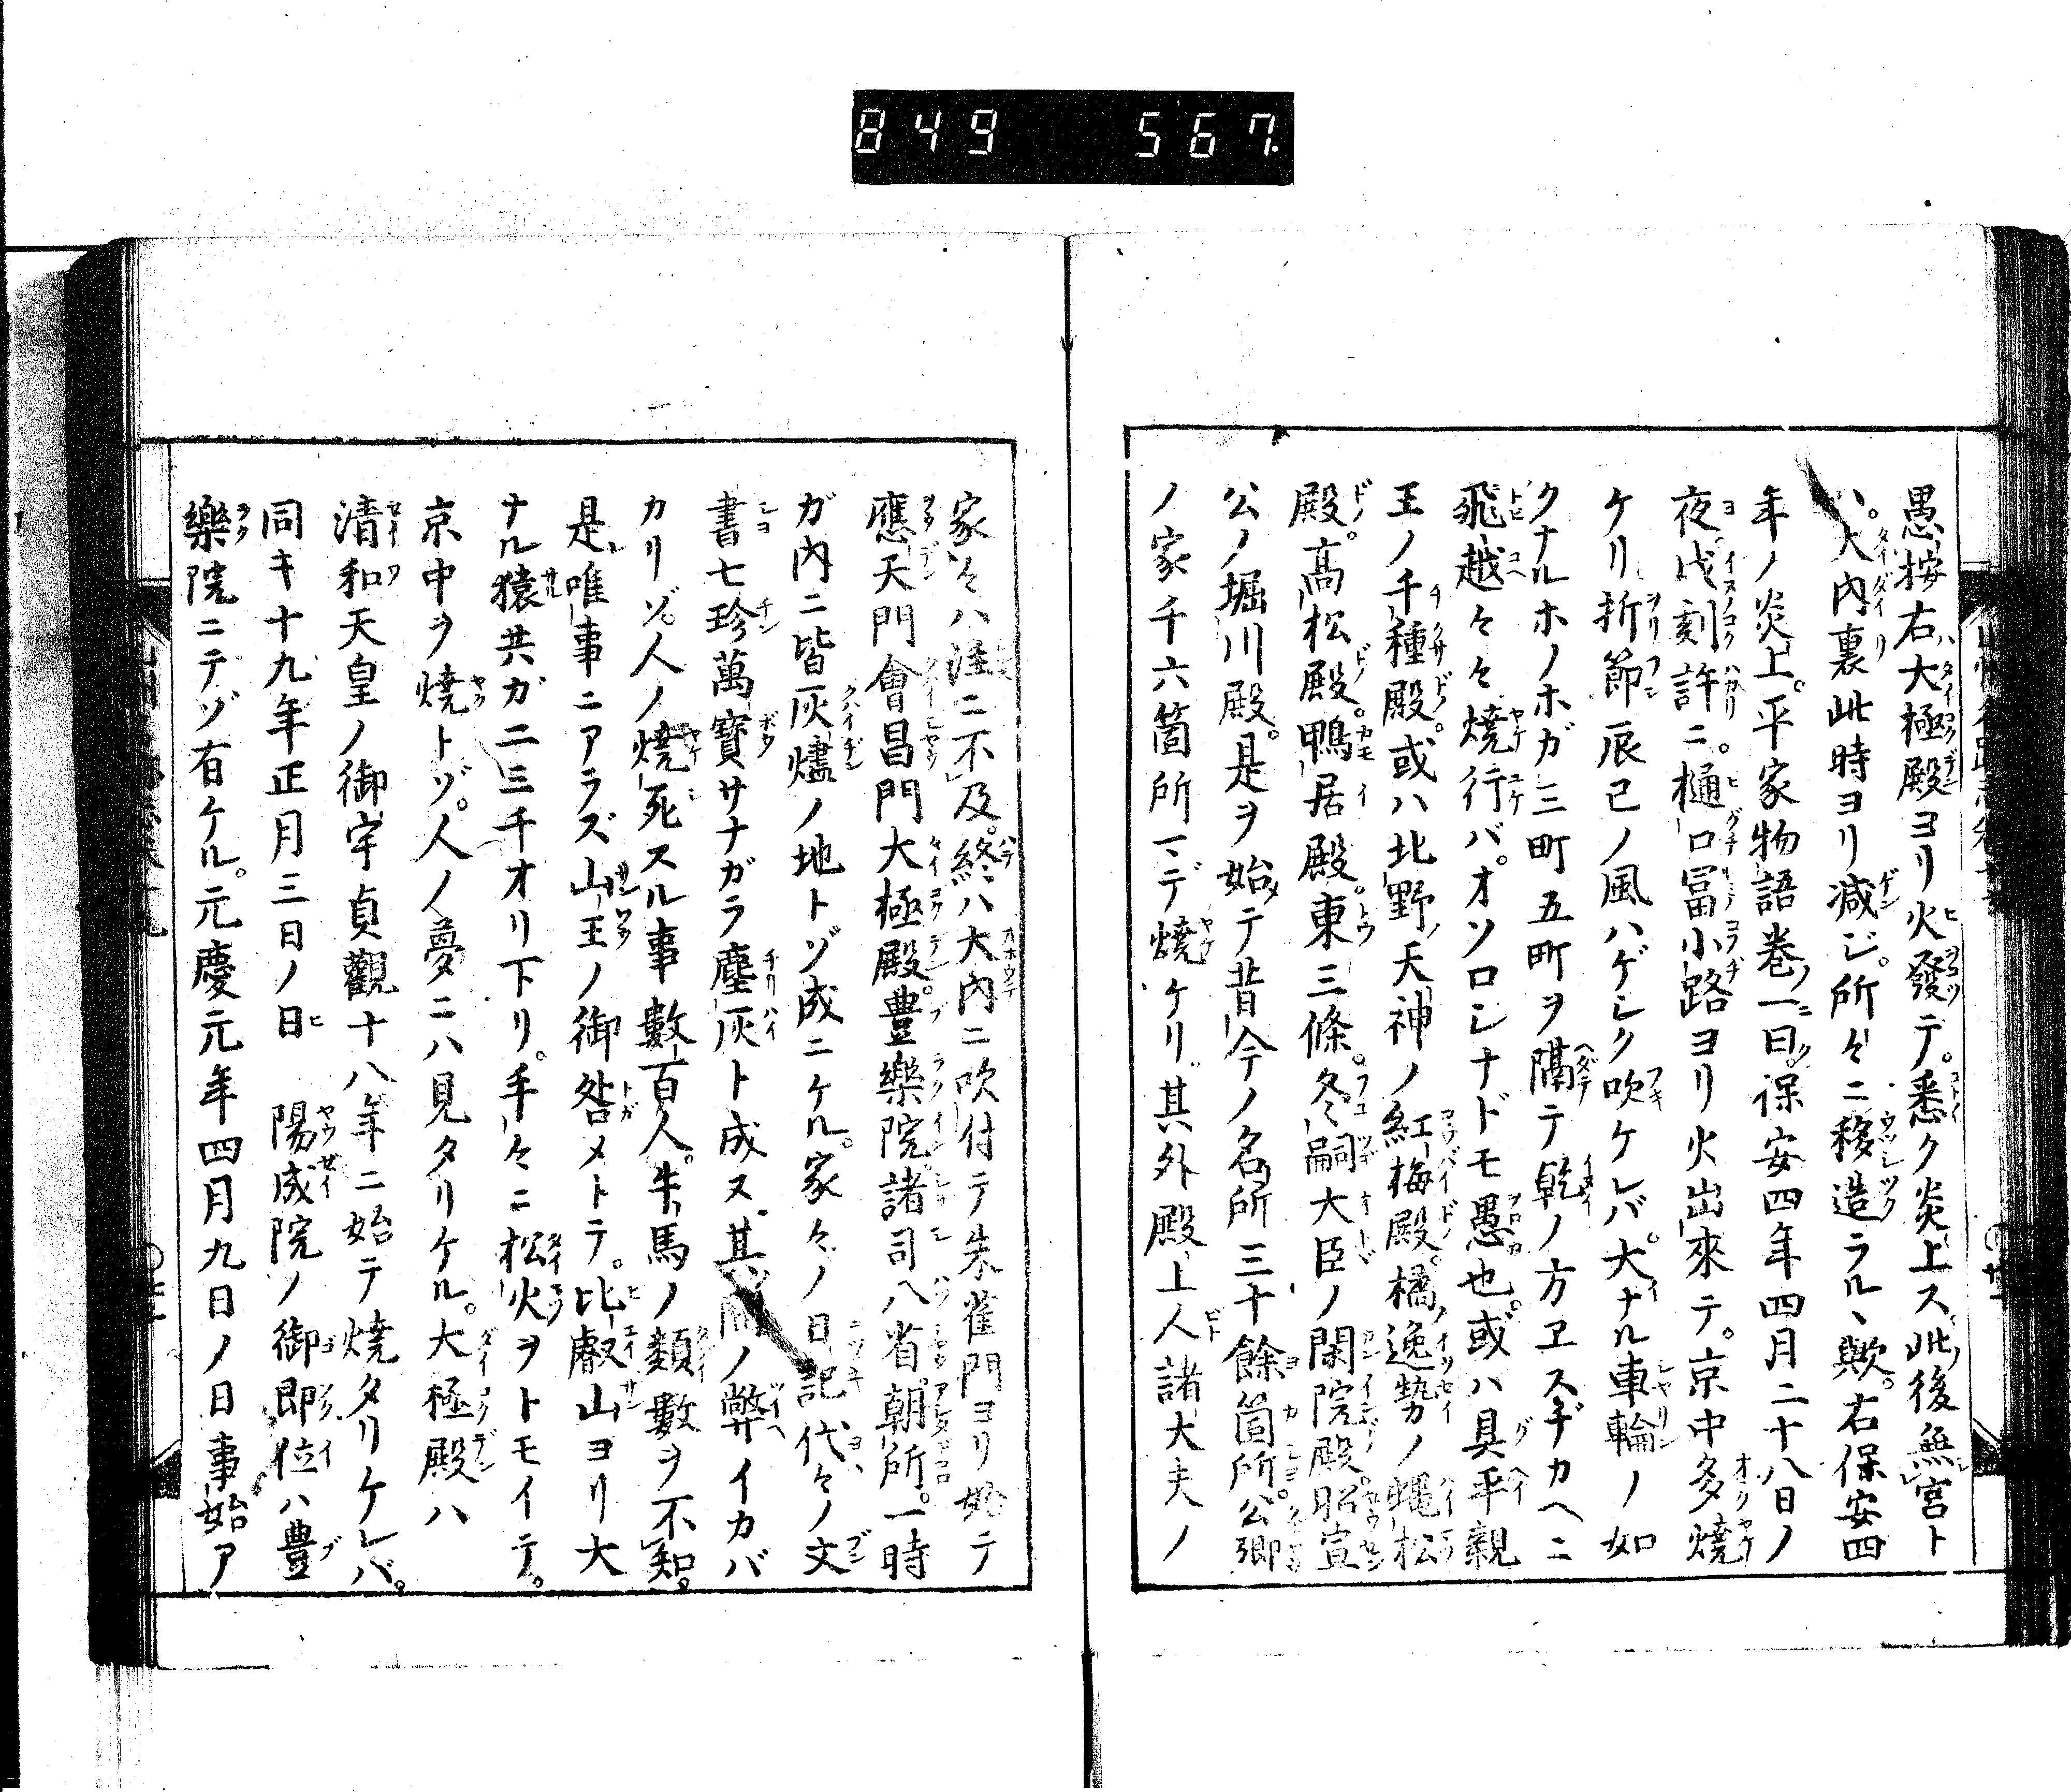 849 567.
愚按右大極殿ヨリ火發テ。悉ク炎上ス。此後無宮ト
ハ。大内裏此時ヨリ減ジ。所々ニ移造ラル丶歟。右保安四
年ノ炎上。平家物語卷一曰。保安四年四月二十八日ノ
夜。戌刻許ニ。樋口冨小路ヨリ火出來テ。京中多燒
ケリ折節辰巳ノ風ハゲシク吹ケレバ。大ナル車輪ノ如
クナルホノホガ三町五町ヲ隔テ乾ノ方ヱスヂカヘニ
飛越々々燒行バ。オソロシナドモ愚也。或ハ具平親
王ノ千種殿。或ハ北野ノ天神ノ紅梅殿。橘ノ逸勢ノ蠅松
殿。髙松殿。鴨居殿。東三條。冬嗣大臣ノ閑院殿昭宣
公ノ堀川殿。是ヲ始テ昔今ノ名所三十餘箇所。公卿
ノ家千六箇所マデ燒ケリ。其外殿上人諸大夫ノ
家々ハ注ニ不及。終ハ大内ニ吹付テ朱雀門ヨリ始テ
應天門會昌門大極殿。豊樂院諸司八省朝所。一時
ガ内ニ皆灰燼ノ地トゾ成ニケル。家々ノ日記代々ノ文
書七珍萬寳サナガラ塵灰ト成ヌ。其間ノ弊イカバ
カリゾ。人ノ燒死スル事數百人。牛馬ノ類數ヲ不知。
是唯事ニアラズ山王ノ御咎メトテ。比叡山ヨリ大
ナル猿共ガ二三千オリ下リ。手々ニ松火ヲトモイテ。
京中ヲ燒トゾ。人ノ夢ニハ見タリケル。大極殿ハ
清和天皇ノ御宇貞觀十八年ニ始テ燒タリケレバ。
同キ十九年正月三日ノ日 陽成院ノ御即位ハ豊
樂院ニテゾ有ケル。元慶元年四月九日ノ日事始ア